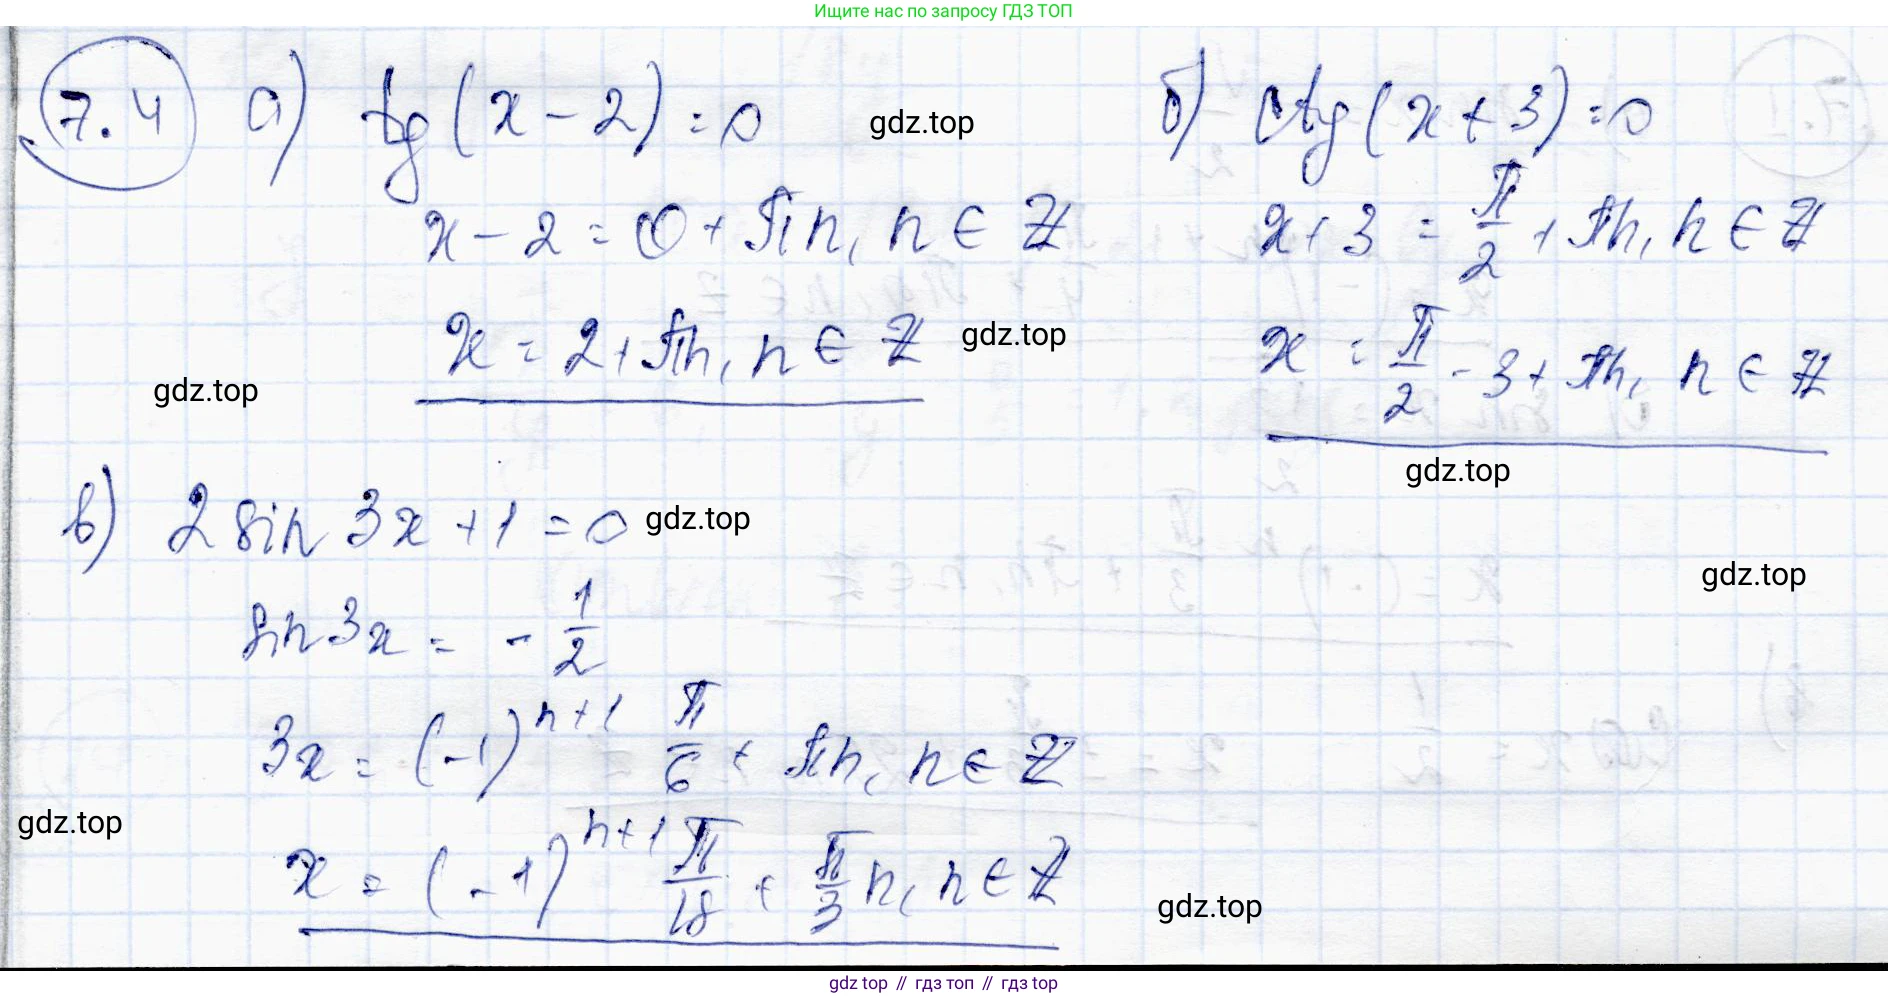 Ищите нас по запросу ГДЗ ТОП
7.4 а) tg(x-2)=0
gdz.top
x-2=0+πn, n∈Z
x=2+πn, n∈Z
gdz.top
gdz.top
б) ctg(x+3)=0
x+3=π/2+πn, n∈Z
x=π/2-3+πn, n∈Z
gdz.top
в) 2sin3x+1=0
gdz.top
gdz.top
sin3x=-1/2
3x=(-1)^{n+1} π/6+πn, n∈Z
gdz.top
x=(-1)^{n+1} π/18+π/3 n, n∈Z
gdz.top
gdz.top // гдз топ // гдз top